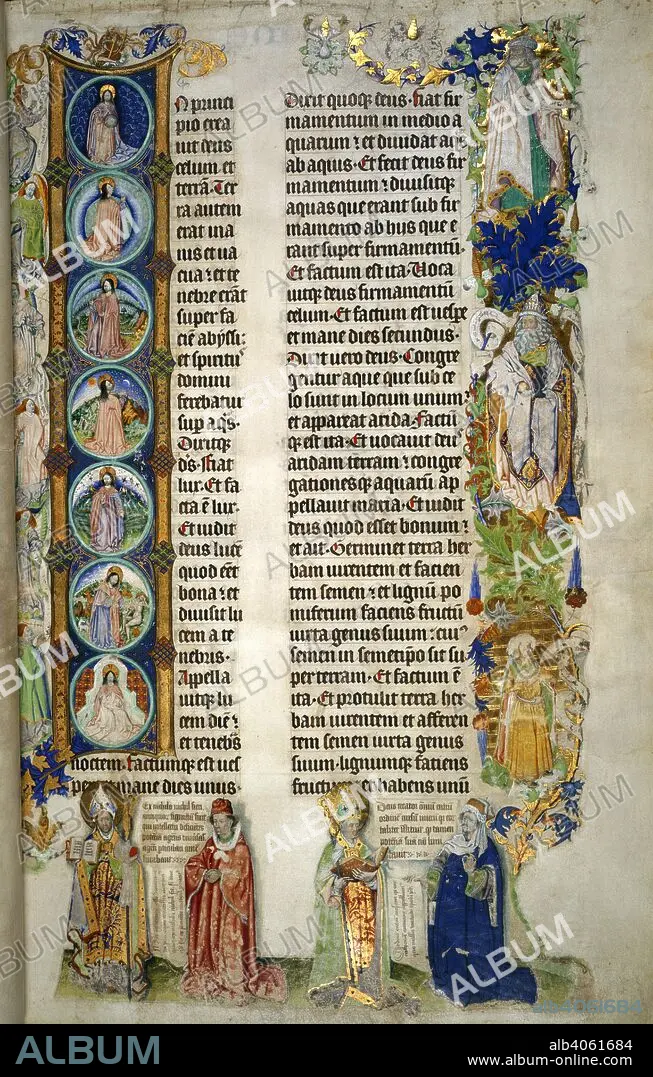 N princi
pio crea
uit deus
celum et
terrā· Ter
ra autem
erat ina
nis et ua
cua : et te
nebre erāt
super fa
ciē abyssi:
et spiritus
domini
ferebatur
sup aqs·
Dixitqȝ
ds· Fiat
lux· Et fa
cta ē lux·
Et uidit
deus lucē
quod eēt
bona : et
diuisit lu
cem a te
nebris·
Appella
uitqȝ lu
cem diē :
et tenebs
noctem· factumqȝ est ues
pere et mane dies unus·
Dixit quoqȝ deus· fiat fir
mamentum in medio a
quarum : et diuidat aqs
ab aquis· Et fecit deus fir
mamentum : diuisitqȝ
aquas que erant sub fir
mamento ab his que e
rant super firmamentū·
Et factum est ita· Uoca
uitqȝ deus firmamentū
celum· Et factum est uespe
et mane dies secundus·
Dixit uero deus· Congre
gentur aque que sub ce
lo sunt in locum unum
et appareat arida· Factū
qȝ est ita· Et uocauit deus
aridam terram : congre
gationesqȝ aquarū ap
pellauit maria· Et uidit
deus quod esset bonum :
et ait· Germinet terra her
bam uirentem et facien
tem semen : et lignū po
miferum faciens fructū
iuxta genus suum : cuius
semen in semetipso sit su
per terram· Et factum ē
ita· Et protulit terra her
bam uirentem et afferen
tem semen iuxta genus
suum· lignumqȝ faciens
fructū et habens unū
Ex nihilo nichil
ALBUM
ab4061684
ALBUM
ab4061684
www.album-online.com